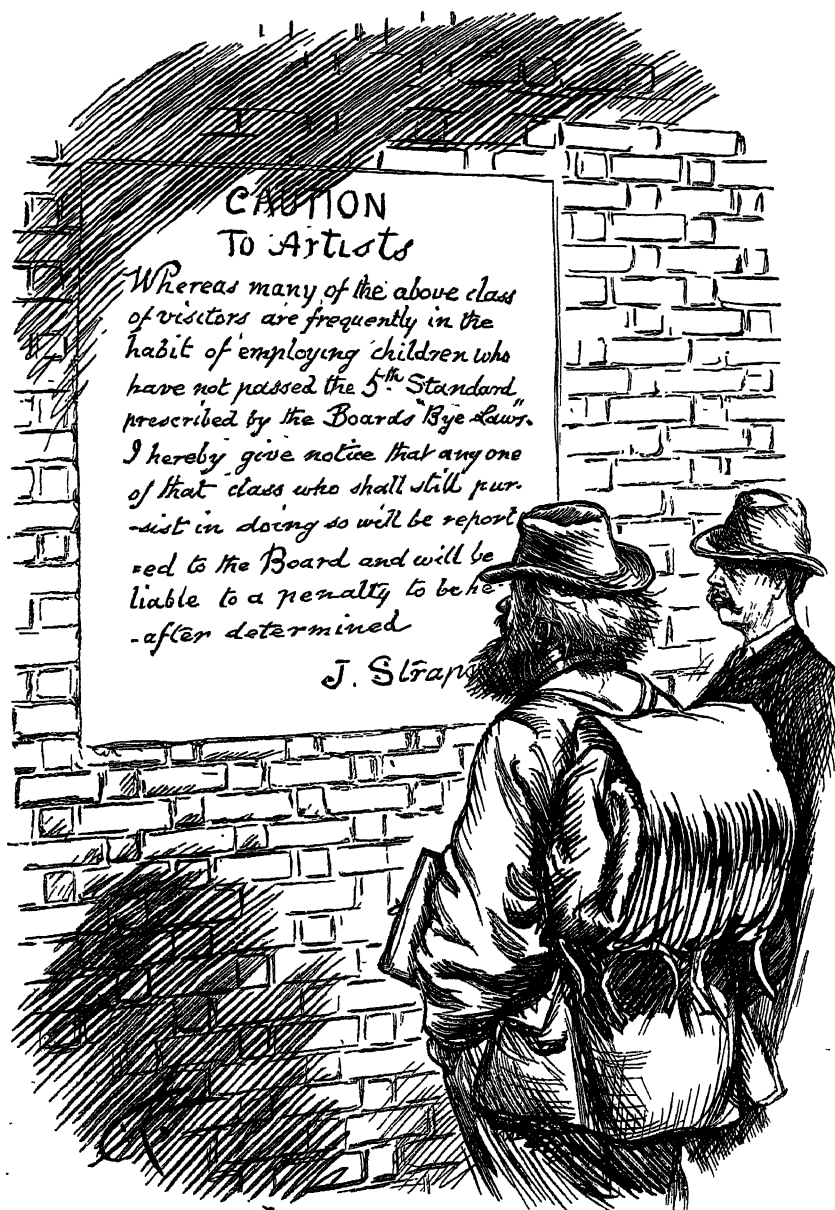 CAUTION
To Artists
Whereas many of the above class
of visitors are frequently in the
habit of employing children who
have not passed the 5th Standard
prescribed by the Boards "Bye Laws".
I hereby give notice that any one
of that class who shall still pur-
-sist in doing so will be report
=ed to the Board and will be
liable to a penalty to be he-
-after determined
J. Strap